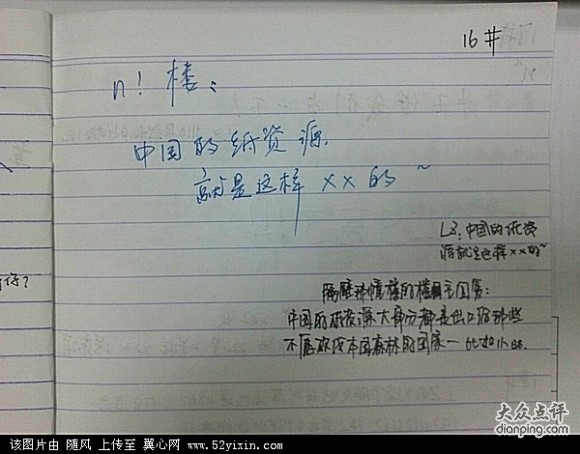 16#
n！楼：
中国的纸资源.
就是这样xx的~
L3：中国的纸资
源就是这样xx的~
隔壁
中国的纸资源大部分都是出口给那些
不愿砍伐本国森林的国家—比如小日本.
大众点评
dianping.com
该图片由 随风 上传至 翼心网 www.52yixin.com